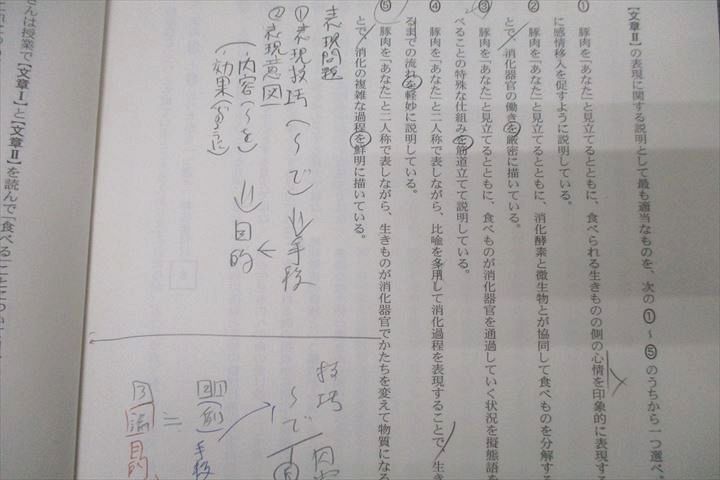 【文章Ⅱ】の表現に関する説明として最も適当なものを、次の①～⑤のうちから一つ選べ。
① 豚肉を「あなた」と見立てるとともに、食べられる生きものの側の心情を印象的に表現する
に感情移入を促すように説明している。
② 豚肉を「あなた」と見立てるとともに、消化酵素と微生物とが協同して食べものを分解する
とで、消化器官の働きを厳密に描いている。
③ 豚肉を「あなた」と見立てるとともに、食べものが消化器官を通過していく状況を擬態語を
べることの特殊な仕組みを筋道立てて説明している。
④ 豚肉を「あなた」と二人称で表しながら、比喩を多用して消化過程を表現することで、生き
るまでの流れを軽妙に説明している。
⑤ 豚肉を「あなた」と二人称で表しながら、生きものが消化器官でかたちを変えて物質になる
とで、消化の複雑な過程を鮮明に描いている。
表現問題
①表現技巧(～で)手段
②表現意図
(内容(～を)
効果(ように)
目的
技巧
～で
手段
目的
さんは授業で【文章Ⅰ】と【文章Ⅱ】を読んで「食べる」ことについ